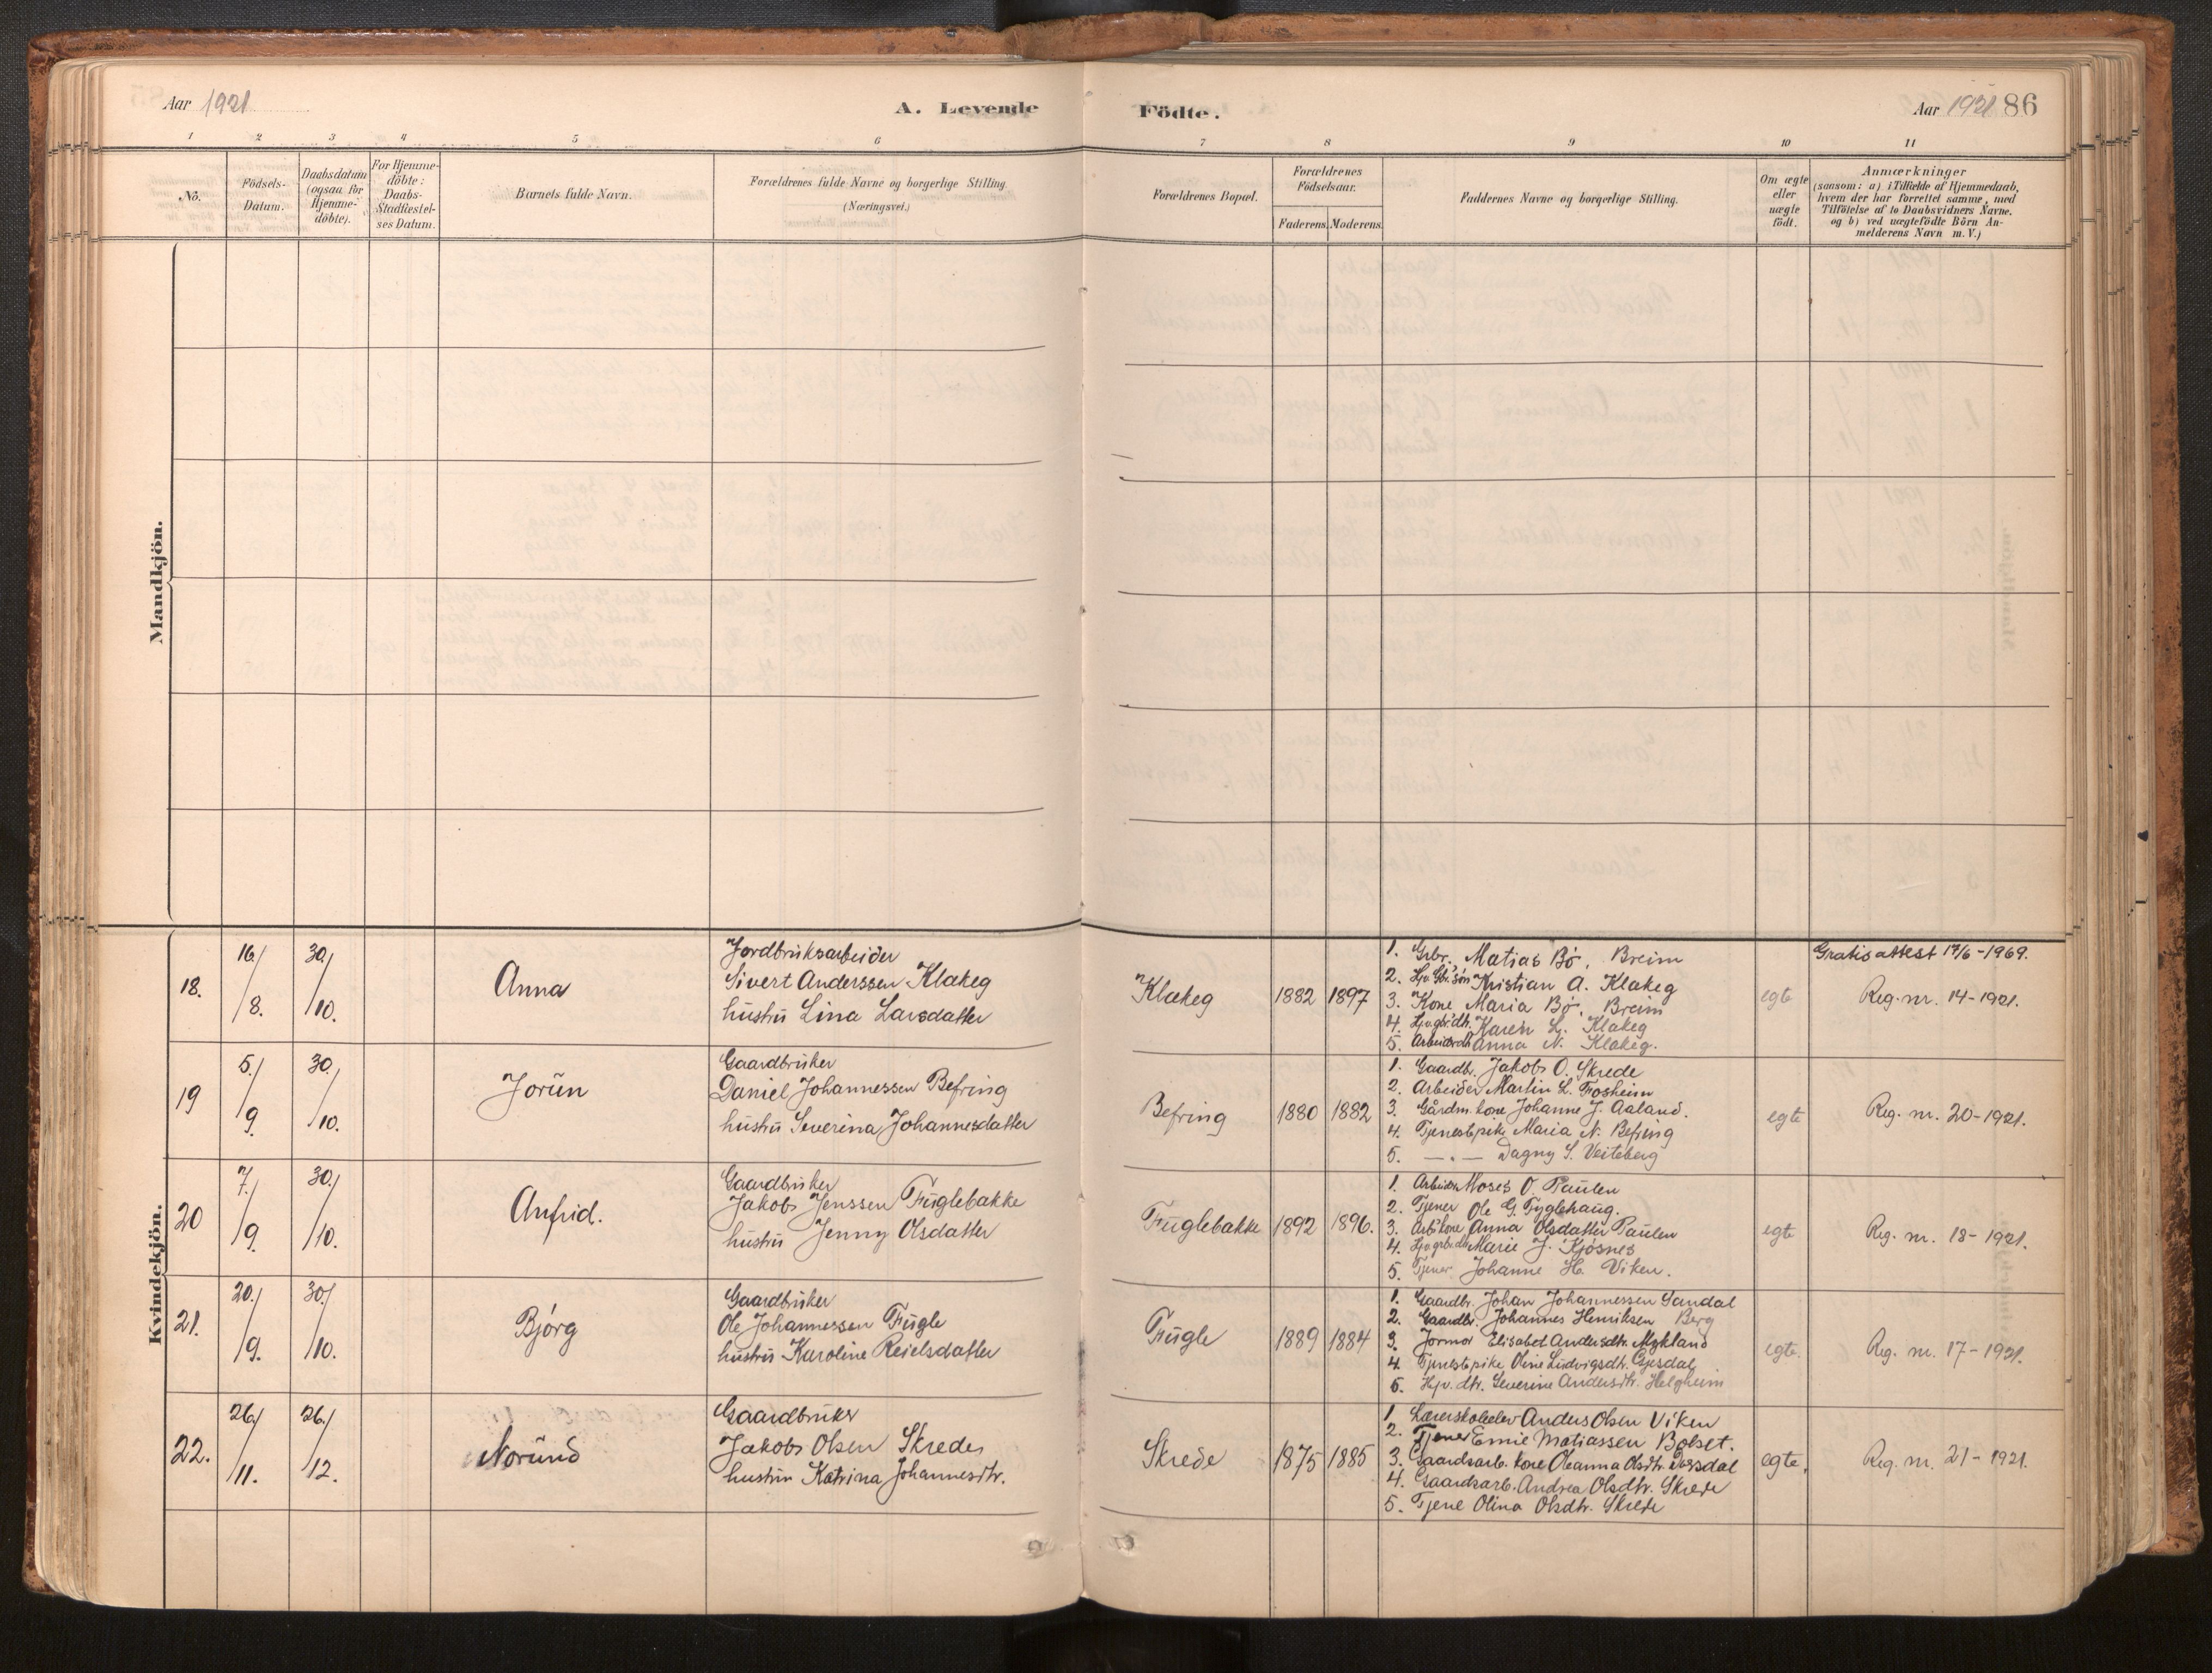 Aar 1921
A. Levende
Födte.
Aar 1921 86
1 2 3 4 5 6 7 8 9 10 11
No.
Födsels-
Datum.
Daabsdatum
(ogsaa for
Hjemme-
döbte).
For Hjemme-
döbte:
Daabs-
Stadfæstel-
ses Datum.
Barnets fulde Navn.
Forældrenes fulde Navne og borgerlige Stilling.
(Næringsvei.)
Forældrenes Bopæl.
Forældrenes
Födselsaar.
Faderens. Moderens.
Faddernes Navne og borgerlige Stilling.
Om ægte
eller
uægte
födt.
Anmærkninger
(saasom: a) i Tilfælde af Hjemmedaab,
hvem der har forrettet samme, med
Tilföielse af to Daabsvidners Navne.
og b) ved uægtefödte Börn An-
melderens Navn m. V.)
Mandkjön.
Kvindekjön.
18.
16./8.
30./10.
Anna
Jordbruksarbeider
Sivert Anderssen Klakeg
hustru Lina Larsdatter
Klakeg
1882 1897
1. Grbr. Matias Bø, Breim
2. Gbr. søn Kristian A. Klakeg
3. Kone Maria Bø, Breim
4. Karen L. Klakeg
5. Arbeiderdtr. Anna N. Klakeg.
egte
Gratis attest 17/6-1969.
Reg. nr. 14-1921.
19
5./9.
30./10.
Jorun
Gaardbruker
Daniel Johannessen Befring
hustru Severina Johannesdatter
Befring
1880 1882
1. Gaardb. Jakob O. Skrede
2. Arbeider Martin L. Fosheim
3. Gårdm. kone Johanne J. Aaland.
4. Tjenestepike Maria N. Befring
5. —"— Dagny S. Veiteberg
egte
Reg. nr. 20-1921.
20
7./9.
30./10.
Anfrid.
Gaardbruker
Jakob Jenssen Fuglebakke
hustru Jenny Olsdatter
Fuglebakke
1892 1896.
1. Arbeider Moses O. Paulen
2. Tjener Ole G. Fyglehaug.
3. Arb. kone Anna Olsdatter Paulen
4. Marie J. Kjøsnes
5. Tjener Johanne H. Viken.
egte
Reg. nr. 18-1921.
21.
20./9.
30./10.
Bjørg
Gaardbruker
Ole Johannessen Fugle
hustru Karoline Reielsdatter
Fugle
1889 1884
1. Gaardbr. Johan Johannessen Sandal
2. Gaardbr. Johannes Henriksen Berg
3. Jormor Elisabet Andersdtr. Mykland
4. Tjenestepike Oline Ludvigsdtr. Gjesdal
5. Hjv. dtr. Severine Andersdtr. Helgheim
egte.
Reg. nr. 17-1921.
22.
26./11.
26./12.
Norund
Gaardbruker
Jakob Olsen Skrede,
hustru Katrina Johannesdtr.
Skrede
1875 1885
1. Lærerskoleelev Anders Olsen Viken
2. Tjener Emil Matiassen Bolset.
3. Gaardsarb. kone Oleanna Olsdtr.
4. Gaardsarb. Andrea Olsdtr. Skrede
5. Tjene Olina Olsdtr. Skrede
egte.
Reg. nr. 21-1921.